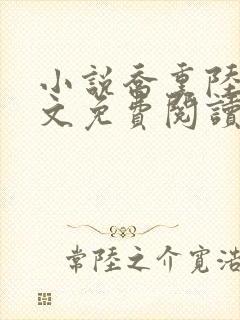 小說喬重陸
文免費閱讀
常陸之介寬浩